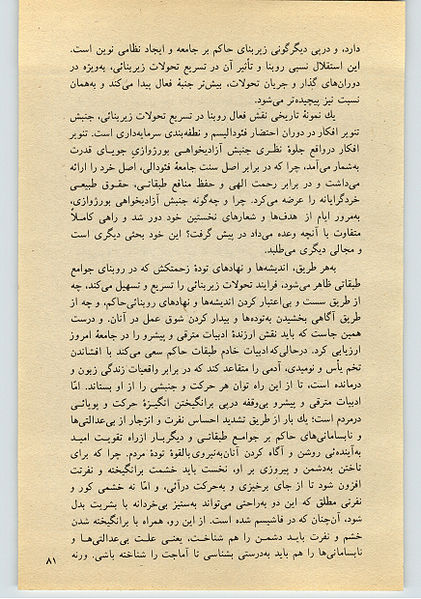 دارد، و درپی دیگرگونی زیربنای حاکم بر جامعه و ایجاد نظامی نوین است.
این استقلال نسبی روبنا و تأثیر آن در تسریع تحولات زیربنائی، به‌ویژه در
دوران‌های گذار و جریان تحولات، بیش‌تر جنبهٔ فعال پیدا می‌کند و به‌همان
نسبت نیز پیچیده‌تر می‌شود.
یك نمونهٔ تاریخی نقش فعال روبنا در تسریع تحولات زیربنائی، جنبش
تنویر افکار در دوران احتضار فئودالیسم و نطفه‌بندی سرمایه‌داری است. تنویر
افکار درواقع جلوهٔ نظری جنبش آزادیخواهی بورژوازیِ جویای قدرت
به‌شمار می‌آمد، چرا که در برابر اصل سنت جامعهٔ فئودالی، اصل خرد را ارائه
می‌داشت و در برابر رحمت الهی و حفظ منافع طبقاتی، حقوق طبیعی
خردگرایانه را عرضه می‌کرد. چرا و چه‌گونه جنبش آزادیخواهی بورژوازی،
به‌مرور ایام از هدف‌ها و شعارهای نخستین خود دور شد و راهی کاملاً
متفاوت با آنچه وعده می‌داد در پیش گرفت؟ این خود بحثی دیگری است
و مجالی دیگری می‌طلبد.
به‌هر طریق، اندیشه‌ها و نهادهای تودهٔ زحمتکش که در روبنای جوامع
طبقاتی ظاهر می‌شود، فرایند تحولات زیربنائی را تسریع و تسهیل می‌کند، چه
از طریق سست و بی‌اعتبار کردن اندیشه‌ها و نهادهای روبنائی‌حاکم، و چه از
طریق آگاهی بخشیدن به‌توده‌ها و بیدار کردن شوق عمل در آنان. و درست
همین جاست که باید نقش ارزندهٔ ادبیات مترقی و پیشرو را در جامعهٔ امروز
ارزیابی کرد. درحالی‌که ادبیات خادم طبقات حاکم سعی می‌کند با افشاندن
تخم یأس و نومیدی، آدمی را متقاعد کند که در برابر واقعیات زندگی زبون و
درمانده است، تا از این راه توان هر حرکت و جنبشی را از او بستاند. امّا
ادبیات مترقی و پیشرو بی‌وقفه درپی برانگیختن انگیزهٔ حرکت و پویائی
درمردم است؛ یك بار از طریق تشدید احساس نفرت و انزجار از بی‌عدالتی‌ها
و نابسامانی‌های حاکم بر جوامع طبقاتی و دیگربار ازراه تقویت امید
به‌آینده‌ئی روشن و آگاه کردن آنان‌به‌نیروی‌بالقوهٔ تودهٔ مردم. چرا که برای
تاختن به‌دشمن و پیروزی بر او، نخست باید خشمت برانگیخته و نفرتت
افزون شود تا از جای برخیزی و به‌حرکت درآئی، و امّا نه خشمی کور و
نفرتی مطلق که این دو به‌راحتی می‌تواند به‌ستیز بی‌خردانه با بشریت بدل
شود، آن‌چنان که در فاشیسم شده است. از این رو، همراه با برانگیخته شدن
خشم و نفرت باید دشمن را هم شناخت، یعنی علت بی‌عدالتی‌ها و
نابسامانی‌ها را هم باید به‌درستی بشناسی تا آماجت را شناخته باشی. ورنه
۸۱